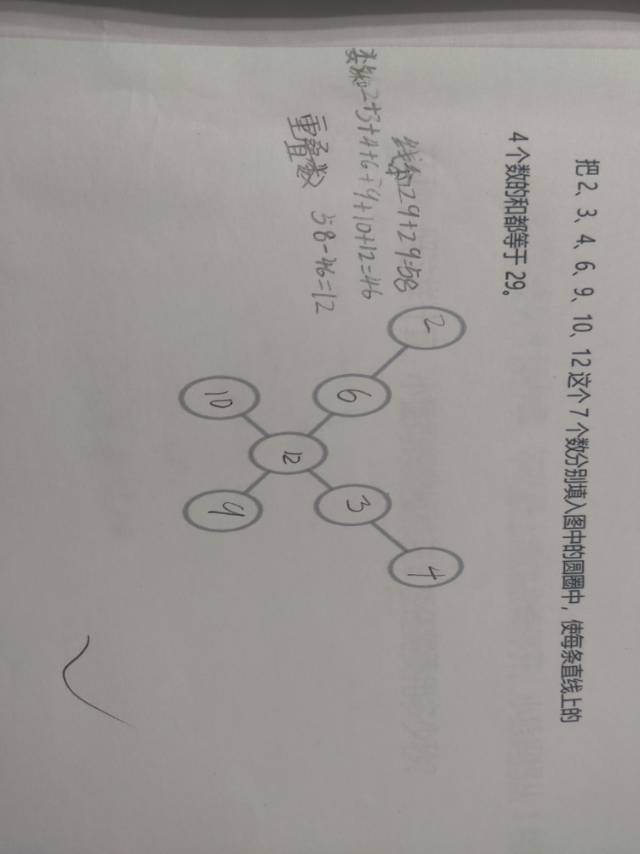 把 2、3、4、6、9、10、12 这个 7 个数分别填入图中的圆圈中，使每条直线上的
4 个数的和都等于 29。
线和29+29=58
数和2+3+4+6+9+10+12=46
重叠数 58-46=12
2
6
10
12
3
9
4